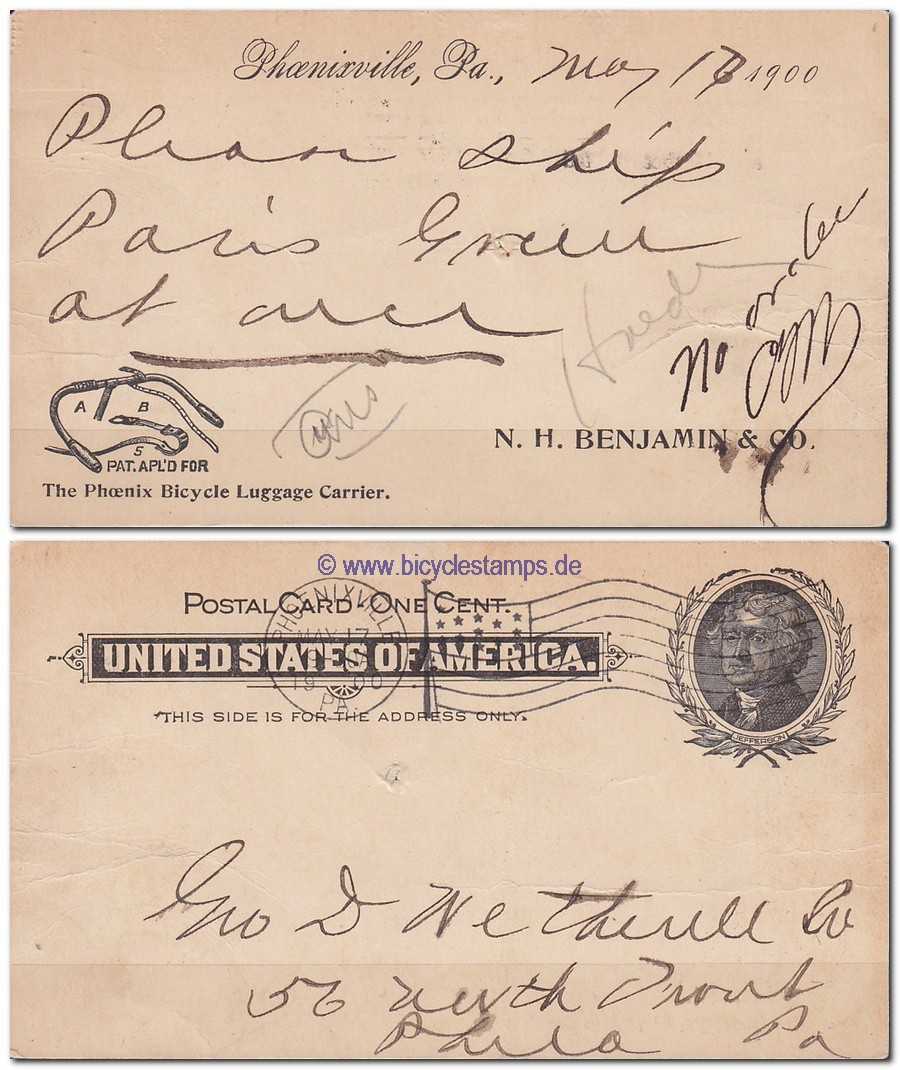 Phœnixville, Pa., May 17 1900
Please ship
Paris Green
at once
no order
A B
5
PAT. APL'D FOR
The Phœnix Bicycle Luggage Carrier.
N. H. BENJAMIN & CO.
© www.bicyclestamps.de
POSTAL CARD - ONE CENT.
UNITED STATES OF AMERICA.
THIS SIDE IS FOR THE ADDRESS ONLY.
PHOENIXVILLE
MAY 17
1900
PA.
JEFFERSON
Geo D Wetherill Co
56 North Front
Phila Pa